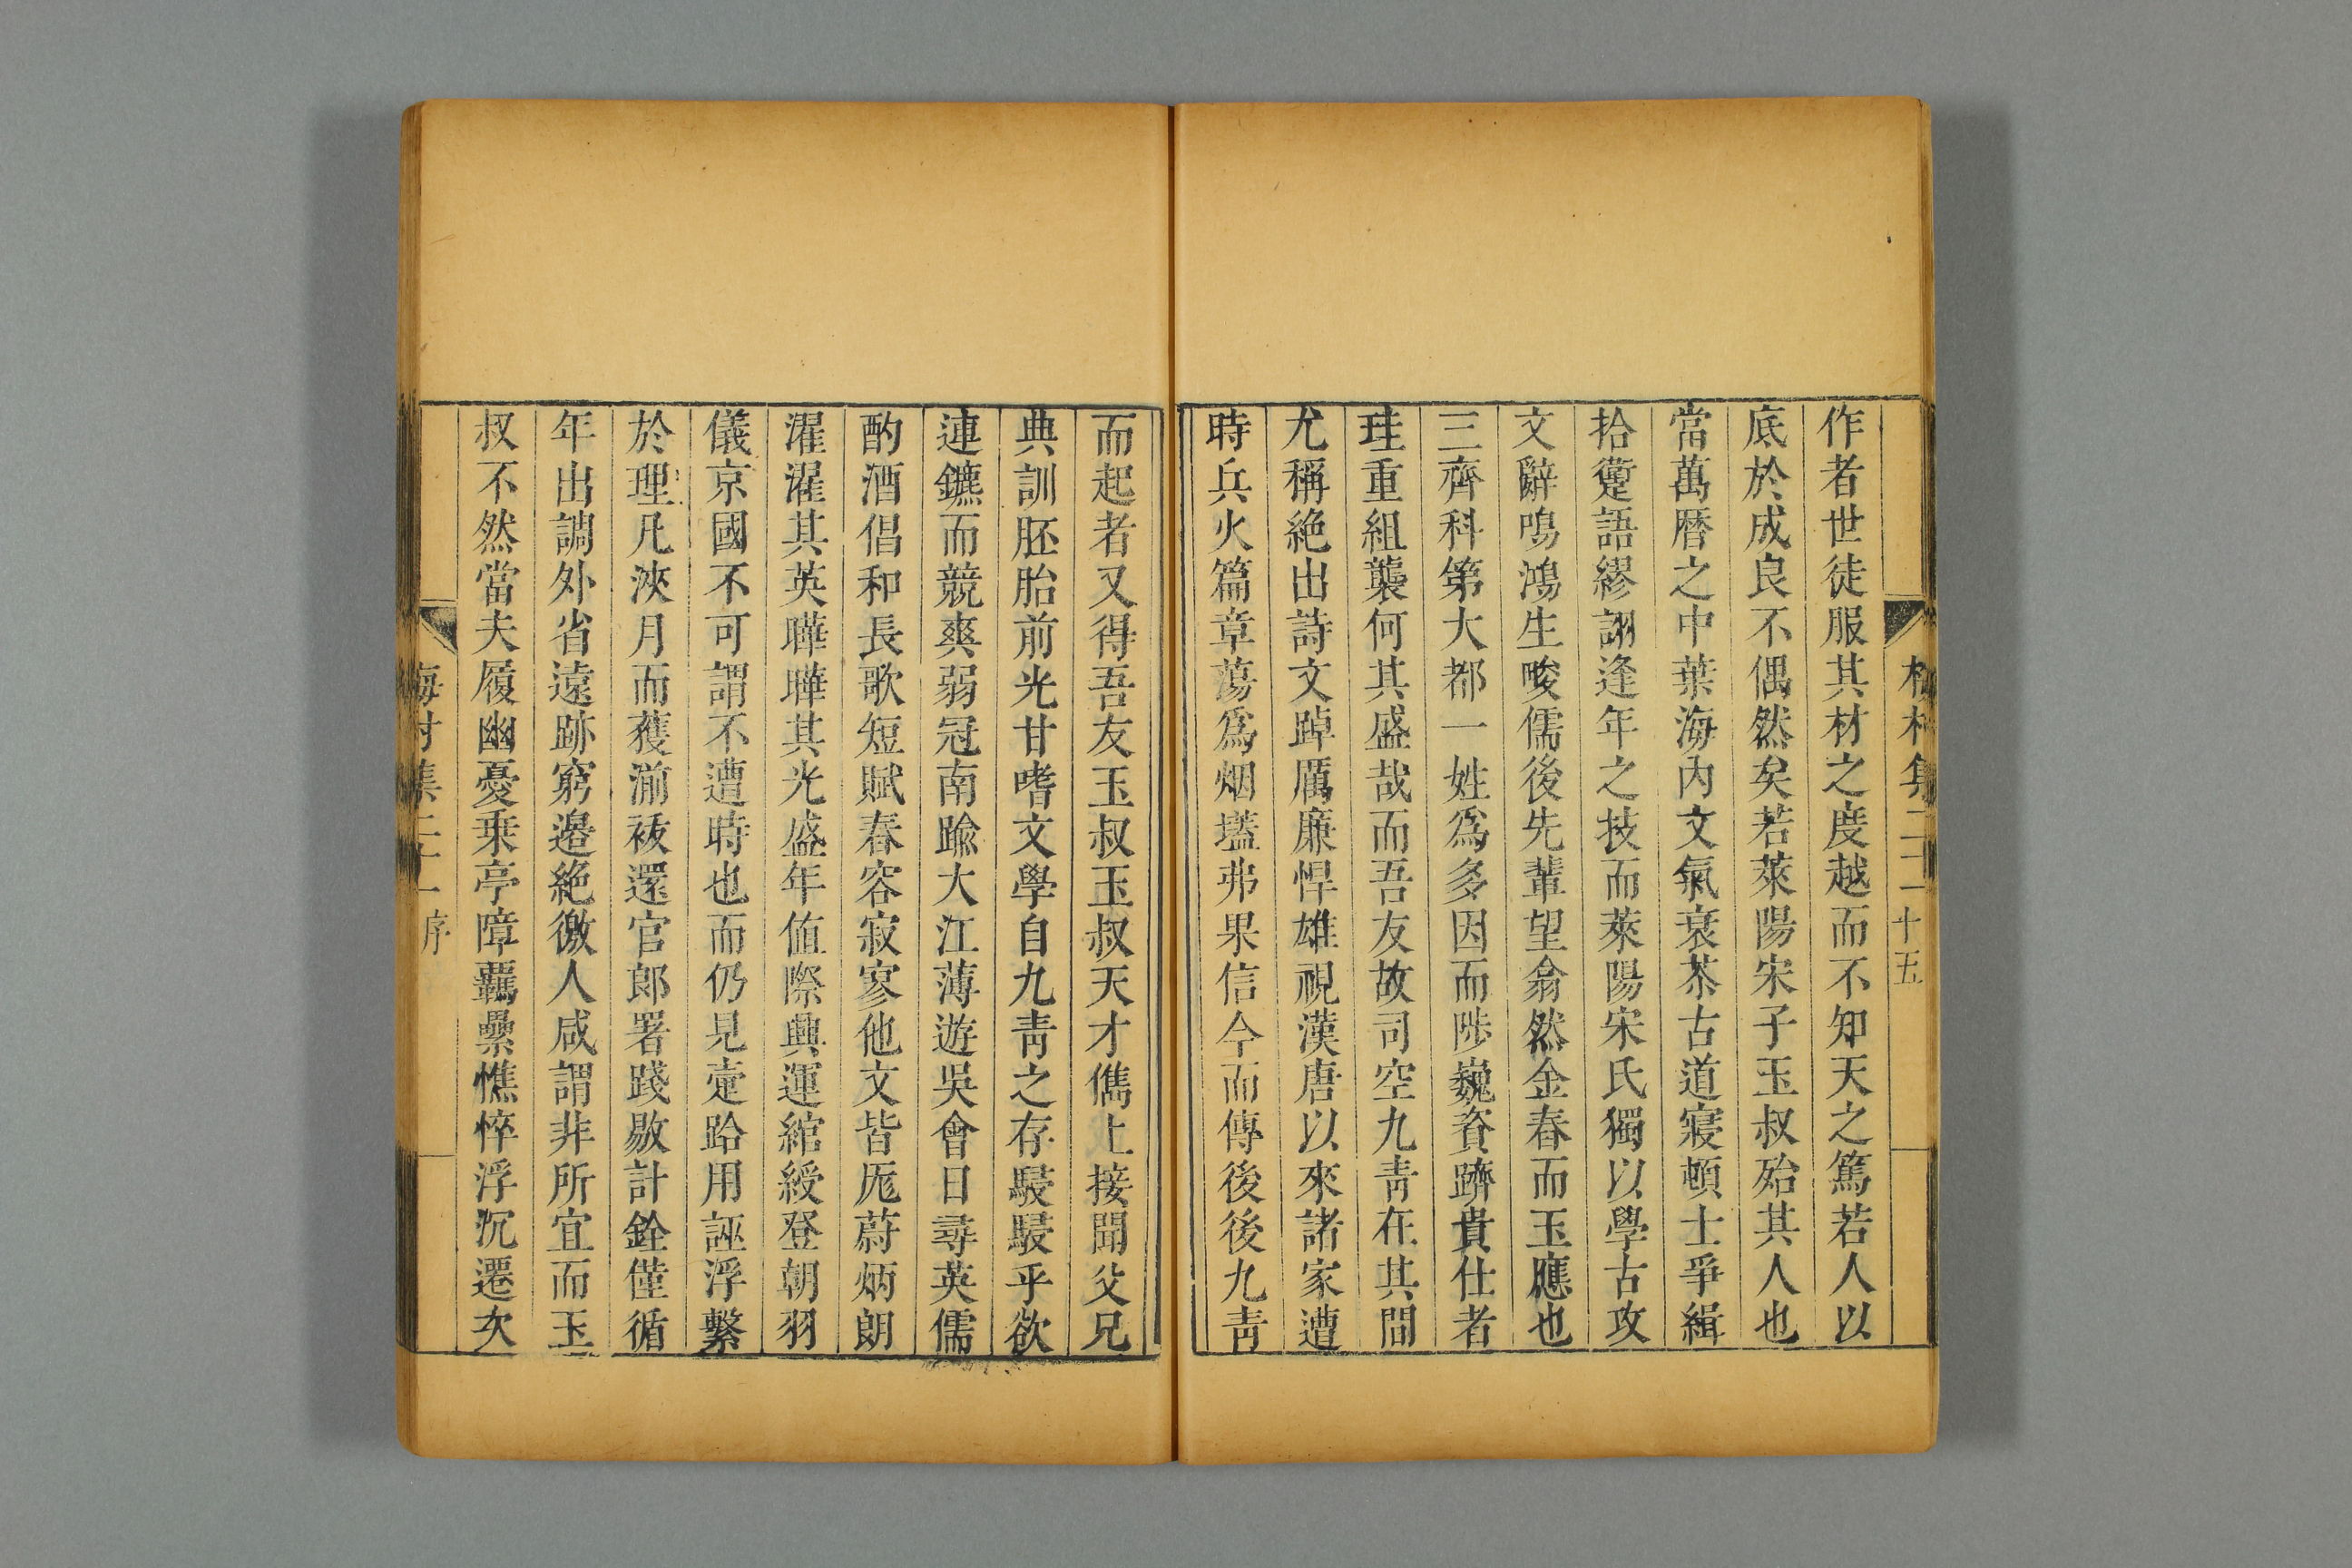 作者世徒服其材之度越而不知天之篤若人以
底於成良不偶然矣若萊陽宋子玉叔殆其人也
當萬曆之中葉海內文氣衰苶古道寖頓士爭緝
拾躗語繆詡逢年之技而萊陽宋氏獨以學古攻
文辭鳴鴻生畯儒後先輩望翕然金春而玉應也
三齊科第大都一姓爲多因而陟巍資躋貴仕者
珪重組襲何其盛哉而吾友故司空九青在其間
尤稱絶出詩文踔厲廉悍雄視漢唐以來諸家遭
時兵火篇章蕩爲烟壒弗果信今而傳後後九青
而起者又得吾友玉叔玉叔天才儁上接聞父兄
典訓胚胎前光甘嗜文學自九青之存駸駸乎欲
連鑣而競爽弱冠南踰大江薄遊吳會日尋英儒
酌酒倡和長歌短賦春容寂寥他文皆厖蔚炳朗
濯濯其英曄曄其光盛年値際興運綰綬登朝羽
儀京國不可謂不遭時也而仍見疐跲用誣浮繫
於理凡浹月而獲湔袚還官郎署踐敭計銓僅循
年出調外省遠跡窮邊絶徼人咸謂非所宜而玉
叔不然當夫履幽憂乗亭障羈纍憔悴浮沉遷次
梅村集二十 十五
梅村集二十 序